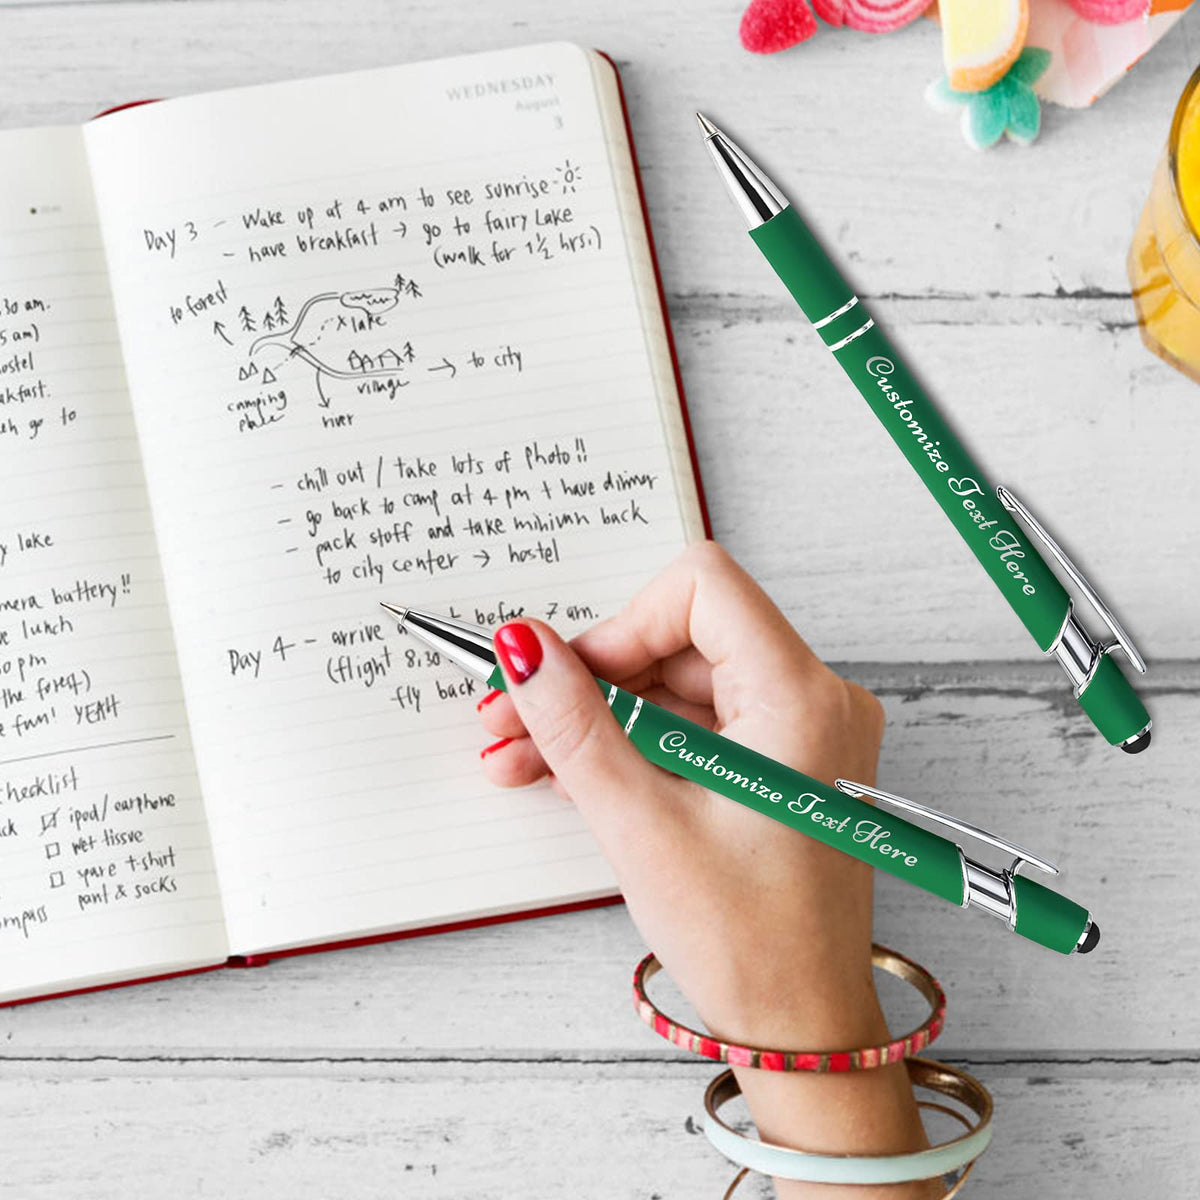 30 am.
5 am)
ostel
akfast.
go to
lake
battery!!
lunch
pm
the forest)
fun! YEAH
checklist
ipod/earphone
wet tissue
spare t-shirt
pant & socks
WEDNESDAY
August
3
Day 3 - Wake up at 4 am to see sunrise
- have breakfast → go to fairy Lake
(walk for 1½ hrs.)
to forest
x lake
village → to city
camping
place
river
- chill out / take lots of photo!!
- go back to camp at 4 pm + have dinner
- pack stuff and take minivan back
to city center → hostel
Day 4 - arrive before 7 am.
(flight 8,30
fly back
Customize Text Here
Customize Text Here